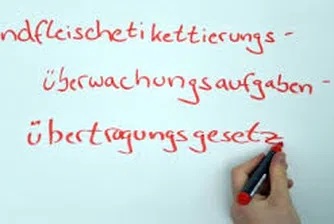 ndfleischetikettierungs-
überwachungsaufgaben-
übertragungsgesetz